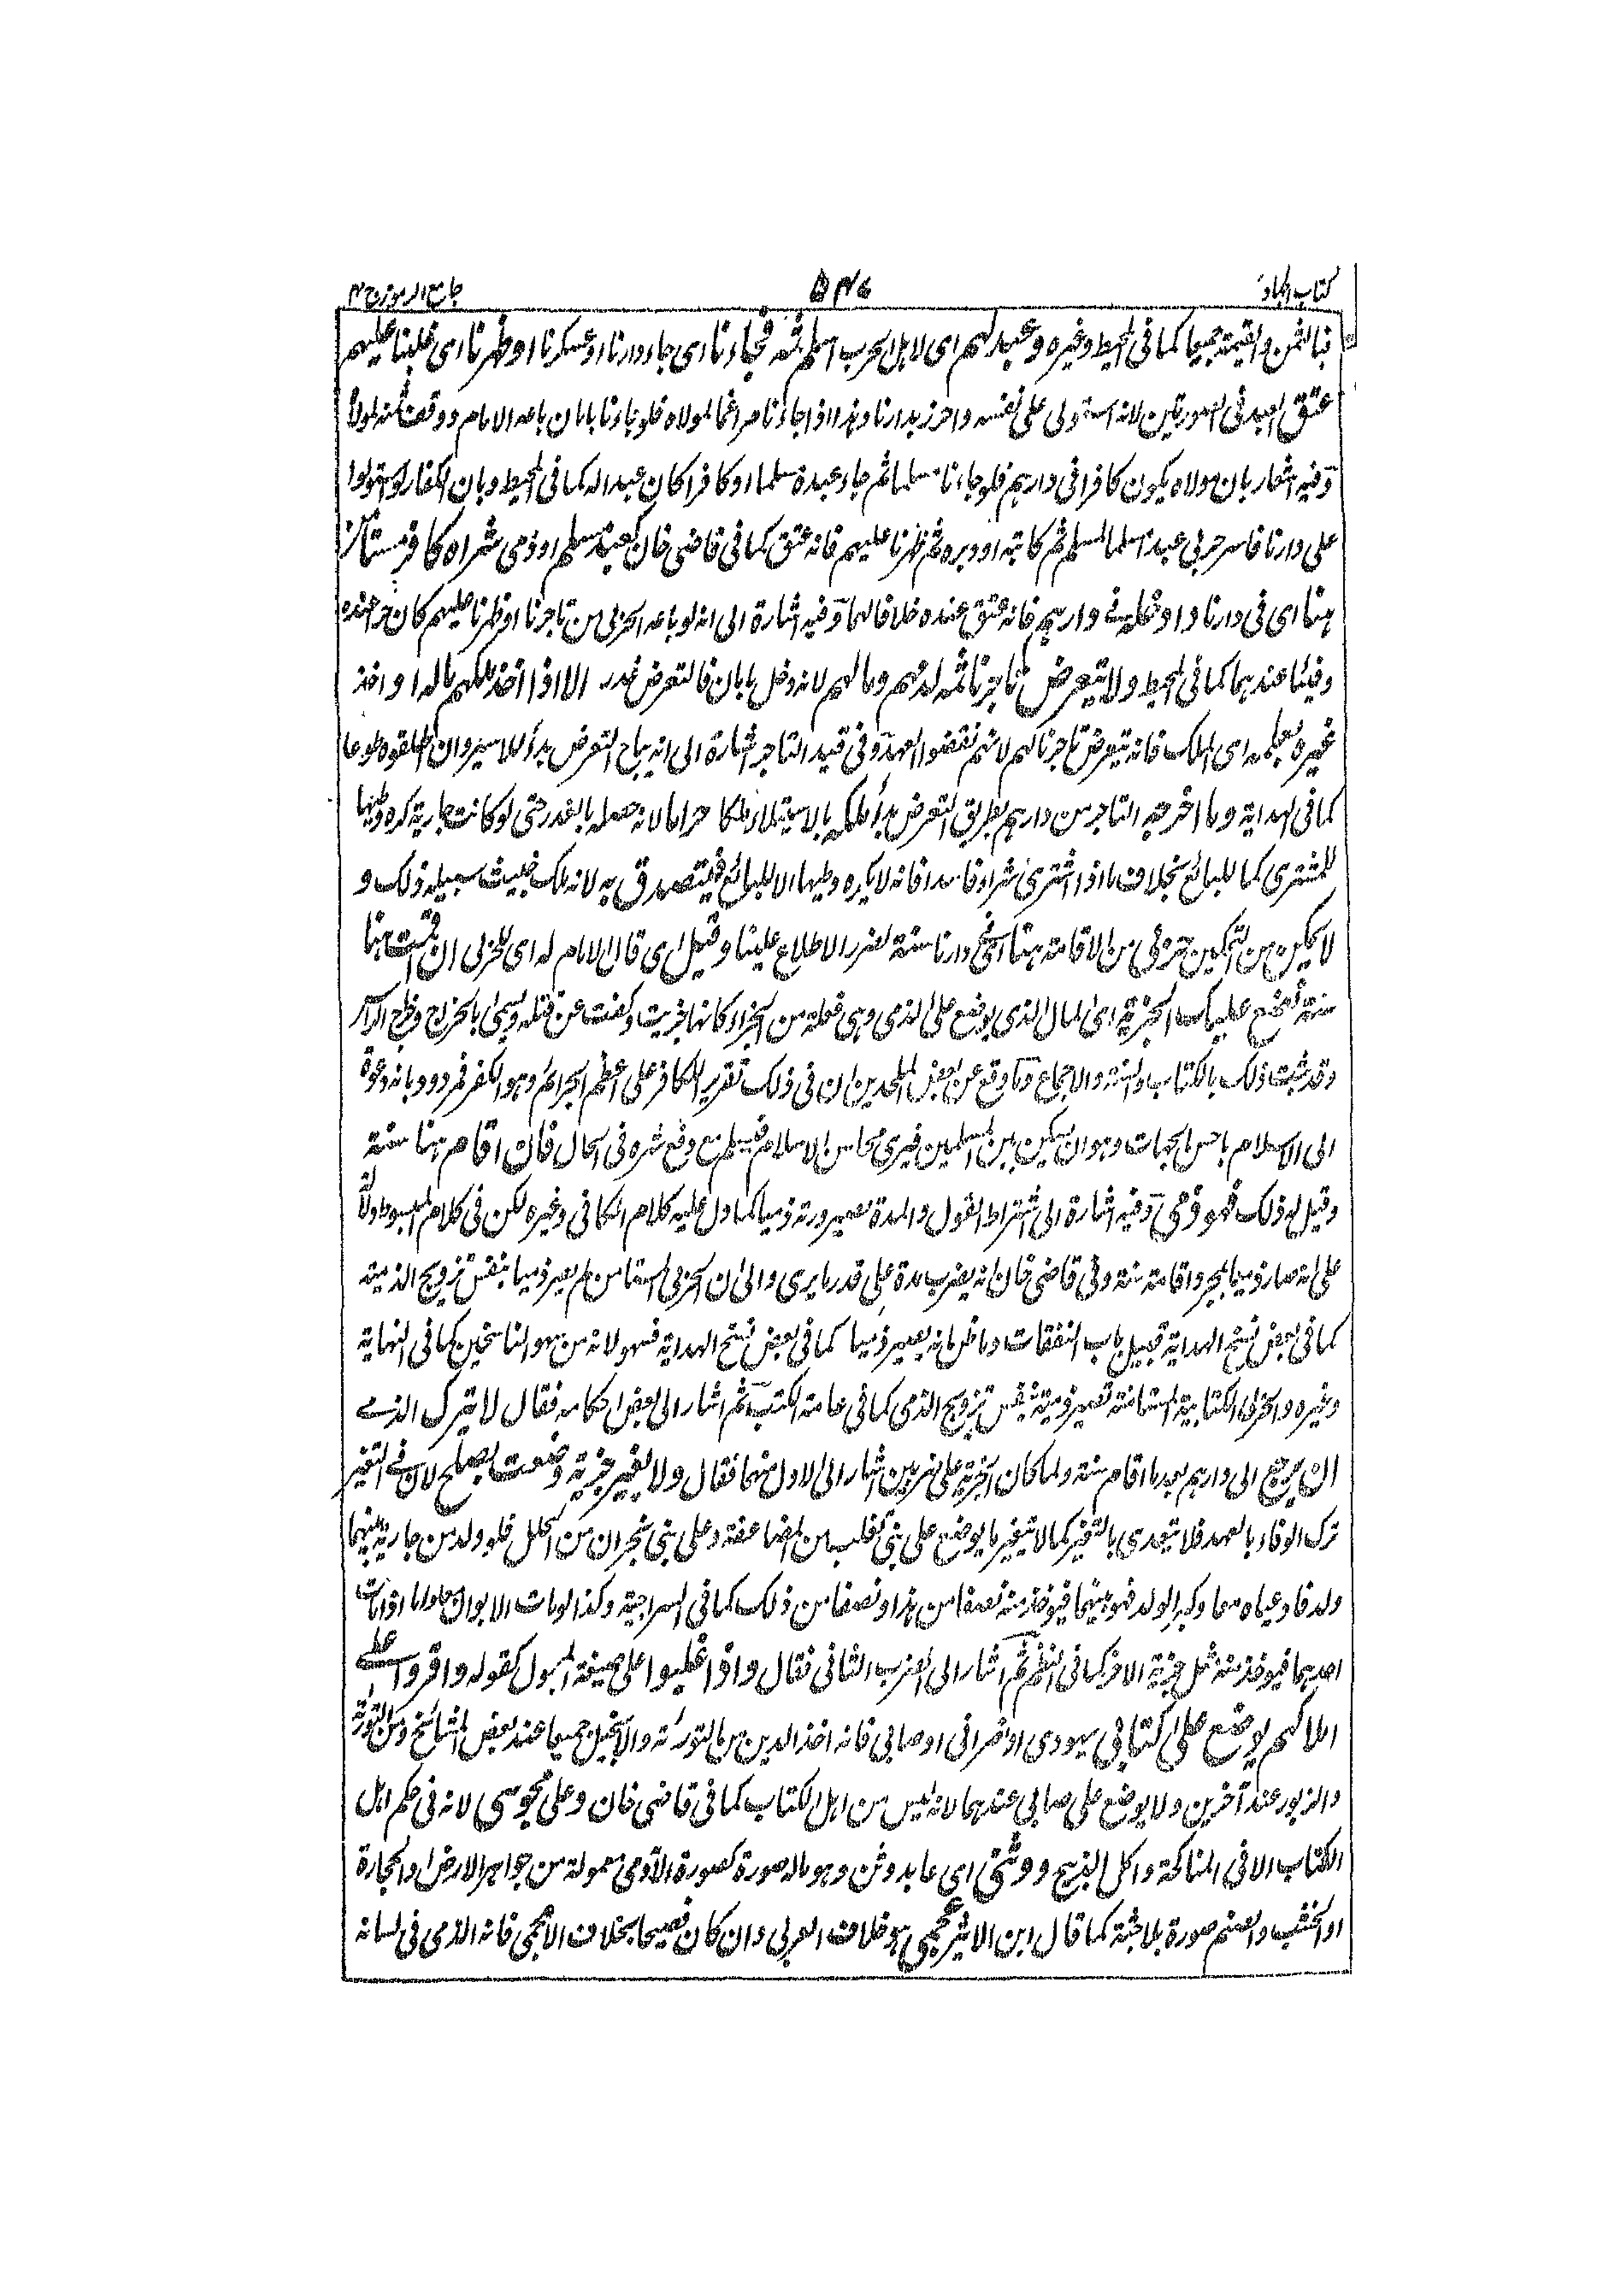 كتاب الجهاد ٥٤٦ جامع الرموز ج ٢
فبالثمن والقيمة جميعا كما فى المحيط وغيره وعبد لهم اى لاهل الحرب اسلم ثمه فجاءنا اى جاء دارنا او عسكرنا او ظهرنا اى غلبنا عليهم
عتق العبد فى الصورتين لانه استولى على نفسه واحرز بدارنا وهذا اذا جاءنا مراغما لمولاه فلو جاءنا بامان باعه الامام ووقف ثمنه لمولاه
وفيه اشعار بان مولاه يكون كافرا فى دارهم فلو جاءنا مسلما ثم جاء عبده مسلما او كافرا كان عبدا له كما فى المحيط وبان الكفار لو استولوا
على دارنا فاسر حربى عبدا مسلما لمسلم ثم كاتبه او دبره ثم ظهرنا عليهم فانه عتق كما فى قاضى خان كعبد مسلم او ذمى شراه كافر مستأمن
هنا اى فى دارنا وادخله فى دارهم فانه عتق عنده خلافا لهما وفيه اشارة الى انه لو باعه الحربى من تاجرنا او ظهرنا عليهم كان حرا عنده
وفيئا عندهما كما فى المحيط ولا يتعرض تاجرنا ثمه لدمهم ومالهم لانه دخل بامان فالتعرض غدر الا اذا اخذ ملكهم ماله او اخذ
غيره بعلمه اى الملك فانه يتعرض تاجرنا لهم لانهم نقضوا العهد وفى قيد التاجر اشارة الى انه يباح التعرض للاسير وان اطلقوه طوعا
كما فى الهداية وما اخرجه التاجر من دارهم بطريق التعرض ملكه بالاستيلاء ملكا حراما لانه حصله بالغدر حتى لو كانت جارية كره وطئها
للمشترى كما للبائع بخلاف ما اذا اشترى شراء فاسدا فانه لا يكره وطيها الا للبائع فيتصدق به لانه ملك خبيث سبيله ذلك و
لا يمكن من التمكين حربى من الاقامة هنا اى فى دارنا سنة لضرر الاطلاع علينا وقيل اى قال الامام له اى للحربى ان اقمت هنا
سنة نضع عليك الجزية اى المال الذى يوضع على الذمى وهى فعلة من الجزاء كانها جزيت وكفت عن قتله ويسمى بالخراج وخراج الرأس
وقد ثبت ذلك بالكتاب والسنة والاجماع وما وقع عن بعض الملحدين ان فى ذلك تقرير الكافر على اعظم الجرائم وهو الكفر فمردود بانه دعوة
الى الاسلام باحسن الجهات وهو ان يسكن بين المسلمين فيرى محاسن الاسلام فيسلم مع دفع شره فى الحال فان اقام هنا سنة
وقيل له ذلك فهو ذمى وفيه اشارة الى اشتراط القول والمدة لصيرورته ذميا كما دل عليه كلام الكافى وغيره لكن فى كلام المبسوط دلالة
على انه صار ذميا بمجرد اقامة سنة وفى قاضى خان انه يضرب مدة على قدر ما يرى والى ان الحربى المستامن لم يصر ذميا بنفس تزويج الذمية
كما فى بعض نسخ الهداية قبيل باب النفقات وما ظن انه يصير ذميا كما فى بعض نسخ الهداية فسهو لانه من سهو الناسخين كما فى النهاية
وغيره والحربى الكتابية المستأمنة تصير ذمية بنفس تزويج الذمى كما فى عامة الكتب ثم اشار الى بعض احكامه فقال لا يترك الذمى
ان يرجع الى دارهم بعد ما اقام سنة ولما كان الجزية على ضربين اشار الى الاول منهما فقال ولا يغير جزية وضعت بصلح لان فى التغير
ترك الوفاء بالعهد فلا يتعدى بالتغير كما لا يتغير ما يوضع على بنى تغلب من المضاعفة وعلى بنى نجران من الحلل فلو ولد من جارية بينهما
ولد فادعياه معا وكبر الولد فهو بينهما فيؤخذ منه نصفا من هذا ونصفا من ذلك كما فى السراجية وكذا لو مات الابوان معا واما اذا مات
احدهما فيوخذ منه مثل جزية الاخر كما فى النظم ثم اشار الى الضرب الثانى فقال واذا غلبوا على صيغة المجهول كقوله واقروا على
املاكهم يوضع على كتابى يهودى او نصرانى او صابى فانه اخذ الدين من التورىة والانجيل جميعا عند بعض المشائخ ومن التورىة
والزبور عند آخرين ولا يوضع على صابى عندهما لانه ليس من اهل الكتاب كما فى قاضى خان وعلى مجوسى لانه فى حكم اهل
الكتاب الا فى المناكحة واكل الذبيح ووثنى اى عابد وثن وهو ماله صورة كصورة الآدمى معمولة من جواهر الارض او الحجارة
او الخشب والصنم صورة بلا جثة كما قال ابن الاثير عجمى هو خلاف العربى وان كان فصيحا بخلاف الاعجمى فانه الذى فى لسانه